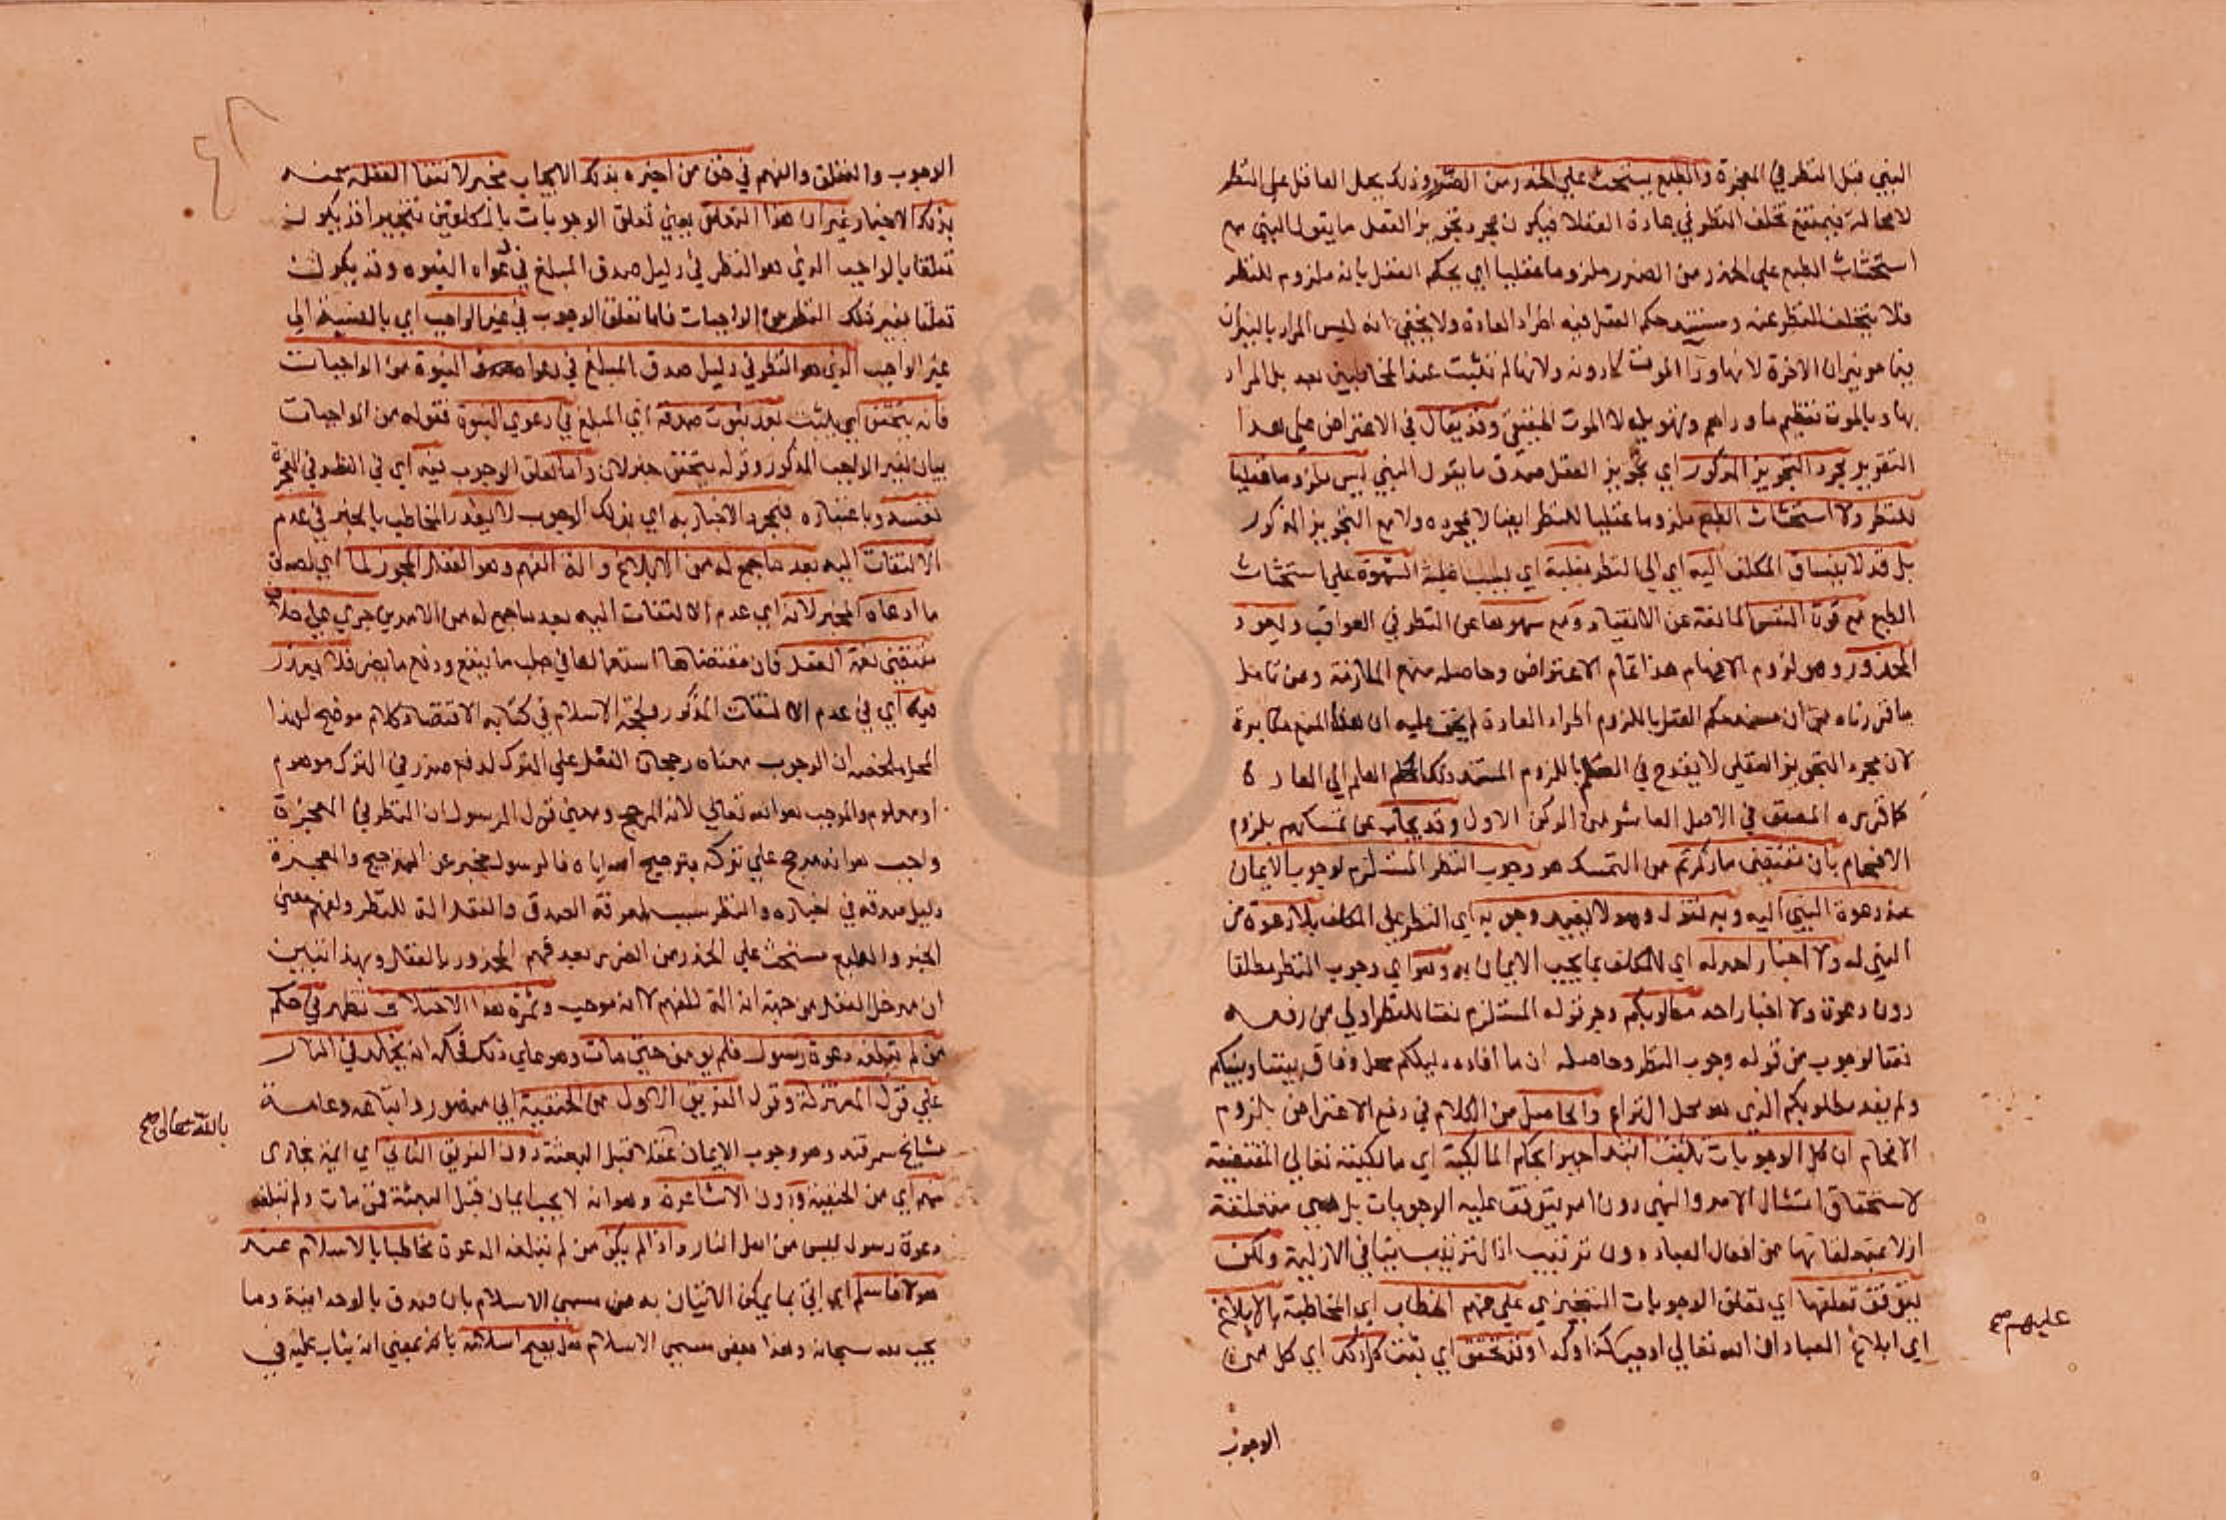 النبي قبل النظر في المعجزة والطبع يستحث علي الحذر من الضرر وذلك يحمل العاقل علي النظر
لا محالة فيمتنع تخلف النظر في عادة العقلا فيكون مجرد تجويز العقل ما يقول النبي مع
استحثاث الطبع علي الحذر من الضرر ملزوما عقليا اي يحكم العقل بانه ملزوم للنظر
فلا يتخلف النظر عنه ومستند حكم العقل فيه اطراد العادة ولا يخفي انه ليس المراد بالنيران
هو نيران الاخرة لانها ورا الموت لا دونه ولانها لم تثبت عند المخاطبين بعد بل المراد
بها وبالموت تعظيم ما وراهم وتهويله لا الموت الحقيقي وقد يقال في الاعتراض علي هذا
التقرير مجرد التجويز المذكور اي تجويز العقل صدق ما يقول النبي ليس ملزوما عقليا
للنظر ولا استحثاث الطبع ملزوما عقليا للنظر ايضا لا بمجرده ولا مع التجويز المذكور
بل قد لا ينساق المكلف اليه اي الي النظر بغلبة اي بسبب غلبة الشهوة علي استحثاث
الطبع مع قوة النفس المانعة عن الانقياد ومع سهوها عن النظر في العواقب ويعود
المحذور وهو لزوم الافحام هذا تمام الاعتراض وحاصله منع الملازمة ومن تامل
ما قررناه من ان مستند حكم العقل باللزوم اطراد العادة لم يخف عليه ان هذا المنع مكابرة
لان مجرد التجويز العقلي لا يقدح في العلم باللزوم المستند ذلك العلم الي العادة
كما قرره المصنف في الاصل العاشر من الركن الاول وقد يجاب عن تمسكهم بلزوم
الافحام بان مقتضي ما ذكرتم من التمسك هو وجوب النظر المستلزم لوجوب الايمان
عند دعوة النبي اليه وبه نقول وهو لا يفيد وجوبه اي النظر علي المكلف بلا دعوة من
النبي له ولا اخبار احد له اي للمكلف بما يجب الايمان به وهو اي وجوب النظر مطلقا
دون دعوة ولا اخبار احد مطلوبكم وجر قوله المستلزم نعتا للنظر اولي من رفعه
نعتا لوجوب من قوله وجوب النظر وحاصله ان ما افاده دليلكم محل وفاق بيننا وبينكم
ولم يفد مطلوبكم الذي هو محل النزاع والحاصل من الكلام في دفع الاعتراض بلزوم
الافحام ان كل الوجوبات تثبت ابتدا جبرا بحكم المالكية اي مالكيته تعالي المقتضية
لاستحقاق امتثال الامر والنهي دون امر يتوقف عليه الوجوبات بل هي متعلقة
ازلا بمتعلقاتها من افعال العباد دون ترتيب اذ الترتيب ينافي الازلية ولكن
يتوقف تعلقها اي تعلق الوجوبات التنجيزي علي فهم الخطاب اي المخاطبة بالابلاغ
اي ابلاغ العباد ان الله تعالي اوجب كذا وكذا وقد تحقق اي ثبت كل ذلك اي كل من
عليهم صح
الوجوب
الوجوب والتعلق والفهم في حق من اخبره بذلك الايجاب مخبر لانتفا الغفلة عنه
بذلك الاخبار غير ان هذا التعلق يعني تعلق الوجوبات بالمكلفين تنجيزا قد يكون
تعلقا بالواجب الذي هو النظر في دليل صدق المبلغ في دعواه النبوة وقد يكون
تعلقا بغير ذلك النظر من الواجبات فاما تعلق الوجوب في غير الواجب اي بالنسبة الي
غير الواجب الذي هو النظر في دليل صدق المبلغ في دعواه النبوة من الواجبات
فانه يتحقق اي يثبت بعد ثبوت صدقه اي المبلغ في دعوي النبوة فقوله من الواجبات
بيان لغير الواجب المذكور وقوله يتحقق خبر لان واما تعلق الوجوب فيه اي في النظر في المعجزة
نفسه وباعتباره فبمجرد الاخبار به اي بذلك الوجوب لا يعذر المخاطب بالخبر في عدم
الالتفات اليه بعد ما جمع له من الابلاغ والة الفهم وهو العقل المجوز لما اي لصدق
ما ادعاه المخبر لانه اي عدم الالتفات اليه بعد ما جمع له من الامرين جري علي خلاف
مقتضي نعمة العقل فان مقتضاها استعمالها في جلب ما ينفع ودفع ما يضر فلا يعذر
فيه اي في عدم الالتفات المذكور ولحجة الاسلام في كتابه الاقتصاد كلام موضح لهذا
المحل ملخصه ان الوجوب معناه رجحان الفعل علي الترك لدفع ضرر في الترك موهوم
او معلوم والموجب هو الله تعالي لانه المرجح ومعني قول الرسول ان النظر في المعجزة
واجب هو انه مرجح علي تركه بترجيح الله اياه فالرسول مخبر عن الترجيح والمعجزة
دليل صدقه في اخباره والنظر سبب لمعرفة الصدق والعقل الة للنظر ولفهم معني
الخبر والطبع مستحث علي الحذر من الضرر بعد فهم المحذور بالعقل وبهذا تبين
ان مدخل العقل من جهة انه الة للفهم لا انه موجب وثمرة هذا الاختلاف تظهر في حكم
من لم تبلغه دعوة رسول فلم يؤمن حتي مات وهو علي ذلك فحكمه انه يخلد في النار
علي قول المعتزلة وقول الفريق الاول من الحنفية ابي منصور واتباعه وعامة
مشايخ سمرقند وهو وجوب الايمان عقلا قبل البعثة دون الفريق الثاني اي ائمة بخاري
منهم اي من الحنفية ودون الاشاعرة وهو انه لا يجب ايمان قبل البعثة فمن مات ولم تبلغه
دعوة رسول ليس من اهل النار واذا لم يكن من لم تبلغه الدعوة مخاطبا بالاسلام عند
هولا فاسلم اي اتي بما يمكن الاتيان به من مسمي الاسلام بان صدق بالوحدانية وما
يجب لله سبحانه وهذا بعض مسمي الاسلام هل يصح اسلامه بان يعني انه يثاب عليه في
بالله تعالى صح